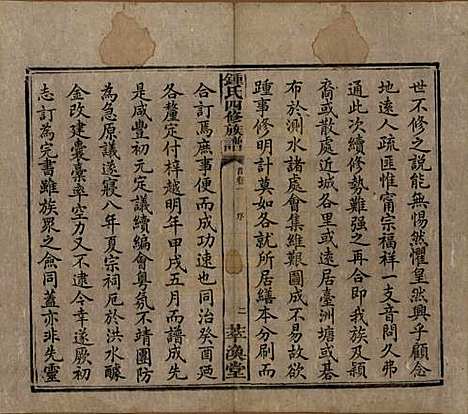 世不修之說能無惕然懼皇然興乎顧念
地遠人疏匪惟甯宗福祥一支音問久弗
通此次續修勢難强之再合即我族及漢
裔或近城各里或遠居臺洲塘或碁
布於測水諸處會集維艱圖成不易故欲
踵事修明計莫如各就所居繕本分刷而
鍾氏四修族譜
首卷
序
二
莘渙堂
合訂焉庶事便而成功速也同治癸酉廼
各釐定付梓越明年甲戌五月而譜成先
是咸豐初元定議續編會粤氛不靖團防
為急原議遂寢八年夏宗祠厄於洪水醵
金改建囊橐率空力又不逮今承厥初
志訂為完書雖族眾之僉同蓋亦非先靈